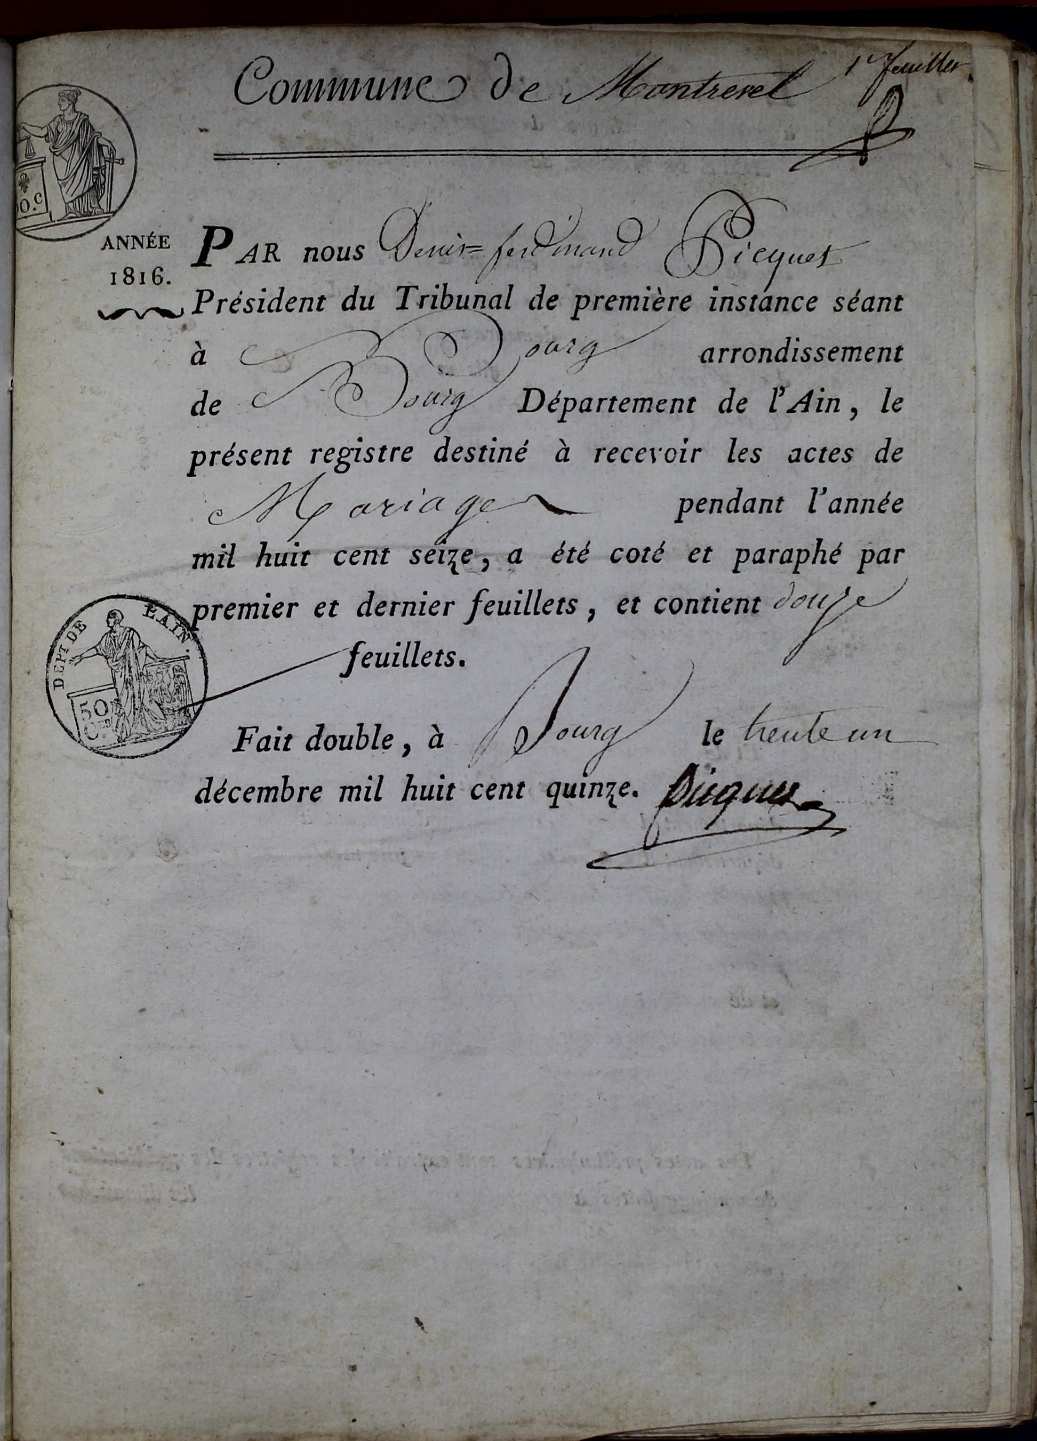 1er feuillet.
Commune de Montrevel
50.C
ANNÉE
1816.
PAR nous Denis=ferdinand Picquet
Président du Tribunal de première instance séant
à Bourg arrondissement
de Bourg Département de l'Ain, le
présent registre destiné à recevoir les actes de
Mariage pendant l'année
mil huit cent seize, a été coté et paraphé par
premier et dernier feuillets, et contient douze
feuillets.
DEPT DE L'AIN.
50
Cmes
Fait double, à Bourg le trente un
décembre mil huit cent quinze. Picquet